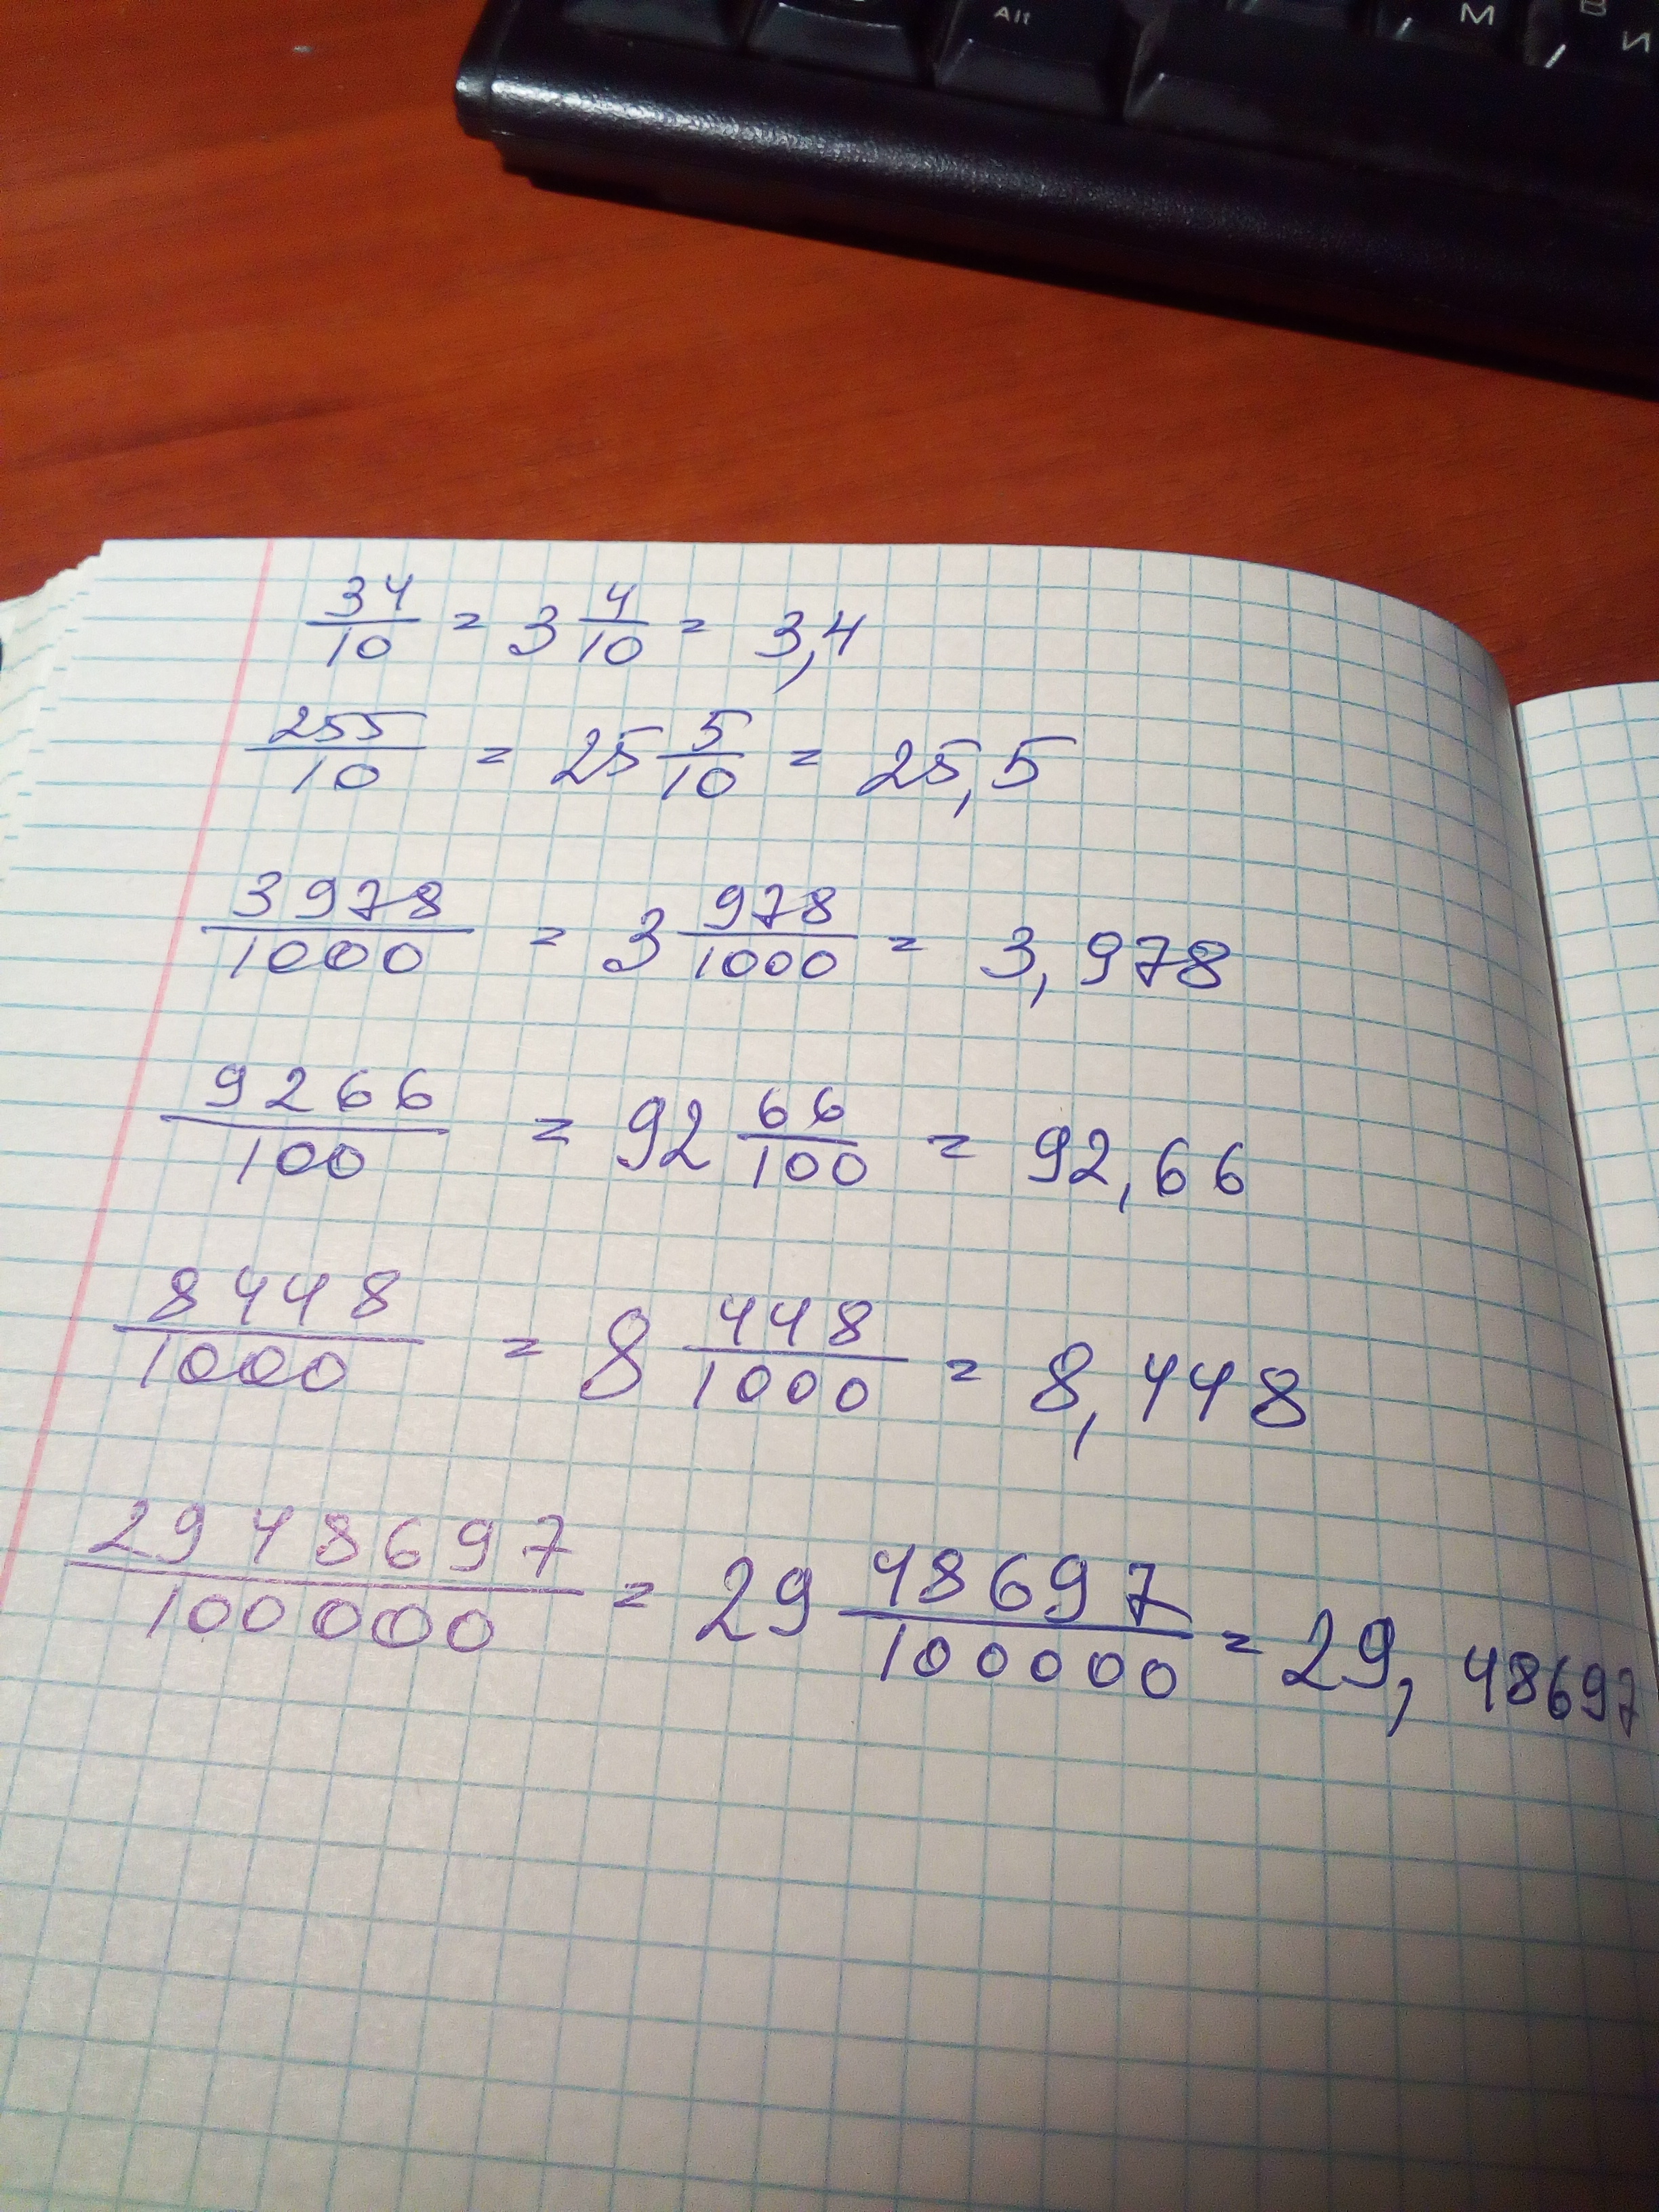 Alt
М
В
И
34/10 = 3 4/10 = 3,4
255/10 = 25 5/10 = 25,5
3978/1000 = 3 978/1000 = 3,978
9266/100 = 92 66/100 = 92,66
8448/1000 = 8 448/1000 = 8,448
2948697/100000 = 29 48697/100000 = 29,48697